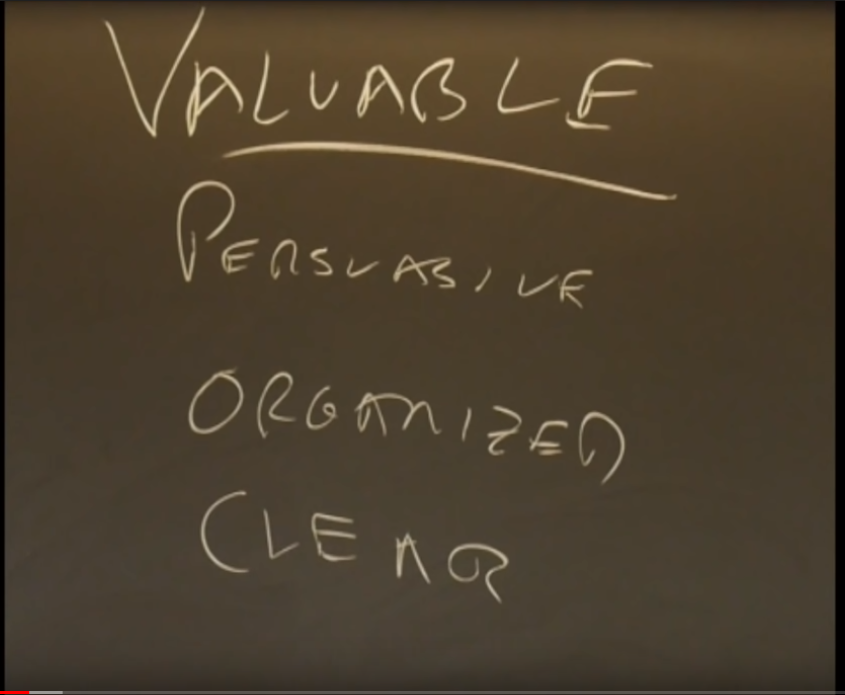 VALUABLE
PERSUASIVE
ORGANIZED
CLEAR